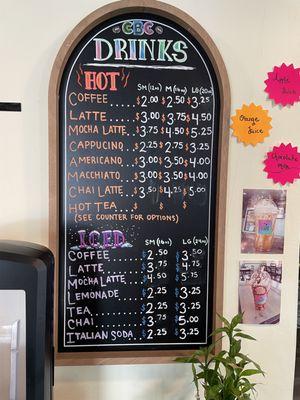 CBC
DRINKS
HOT SM (12oz) M (16oz) LG (20oz)
COFFEE $2.00 $2.50 $3.25
LATTE $3.00 $3.75 $4.50
MOCHA LATTE $3.75 $4.50 $5.25
CAPPUCINO $2.25 $2.75 $3.25
AMERICANO $3.00 $3.50 $4.00
MACCHIATO $3.00 $3.50 $4.00
CHAI LATTE $3.50 $4.25 $5.00
HOT TEA $ $ $
(SEE COUNTER FOR OPTIONS)
ICED SM (16oz) LG (24oz)
COFFEE $2.50 $3.50
LATTE $3.75 $4.75
MOCHA LATTE $4.50 $5.75
LEMONADE $2.25 $3.25
TEA $2.25 $3.25
CHAI $3.75 $5.00
ITALIAN SODA $2.25 $3.25
Apple
Juice
Orange
Juice
Chocolate
Milk